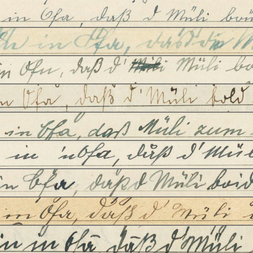 in Ofa, daß d' Müli
in Ofa, dass die M
in Ofu, daß d' Müli boi
Ofa, daß d' Müli bold
in Ofa, daß Müli zum
in 'n Ofa, daß d' Mül
in Ofa, daß d Müli boid
im Ofa, daß d' Müli
in in Ofa daß d' Müli